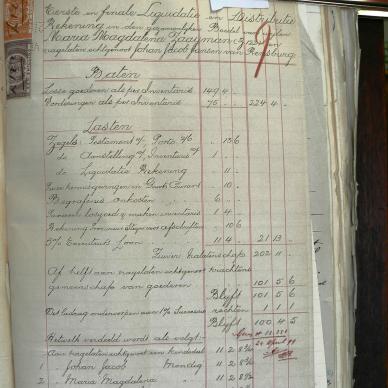 Eerste en finale Liquidatie en Distributie
Rekening in den gezamenlijken Boedel van wijlen
Maria Magdalena Zaayman en
nagelaten echtgenoot Johan Jacob Jansen van Rensburg
Baten
Losse goederen als per Inventaris 149 4 -
Vorderingen als per Inventaris 75 - 224 4 -
Lasten
Zegels: Testament Porto 13 6
do Aanstelling Inventaris 1
do Liquidatie Rekening 11
10
Begrafenis onkosten 6
inventaris 1 4
Rekening 10 6
5% Executeurs Loon 11 4 21 13
Zuiver nalatenschap 202 11
Af helft aan nagelaten echtgenoot krachtens
gemeenschap van goederen 101 5 6
Blyft 101 5 6
Dit bedrag onderworpen aan 1% Successie rechten 1 1
Blyft 100 4 5
Hetwelk verdeeld wordt als volgt:
Aan nagelaten echtgenoot een Kindsdeel 11 2 8
1 Johan Jacob Mondig 11 2 8
2 Maria Magdalena 11 2 8